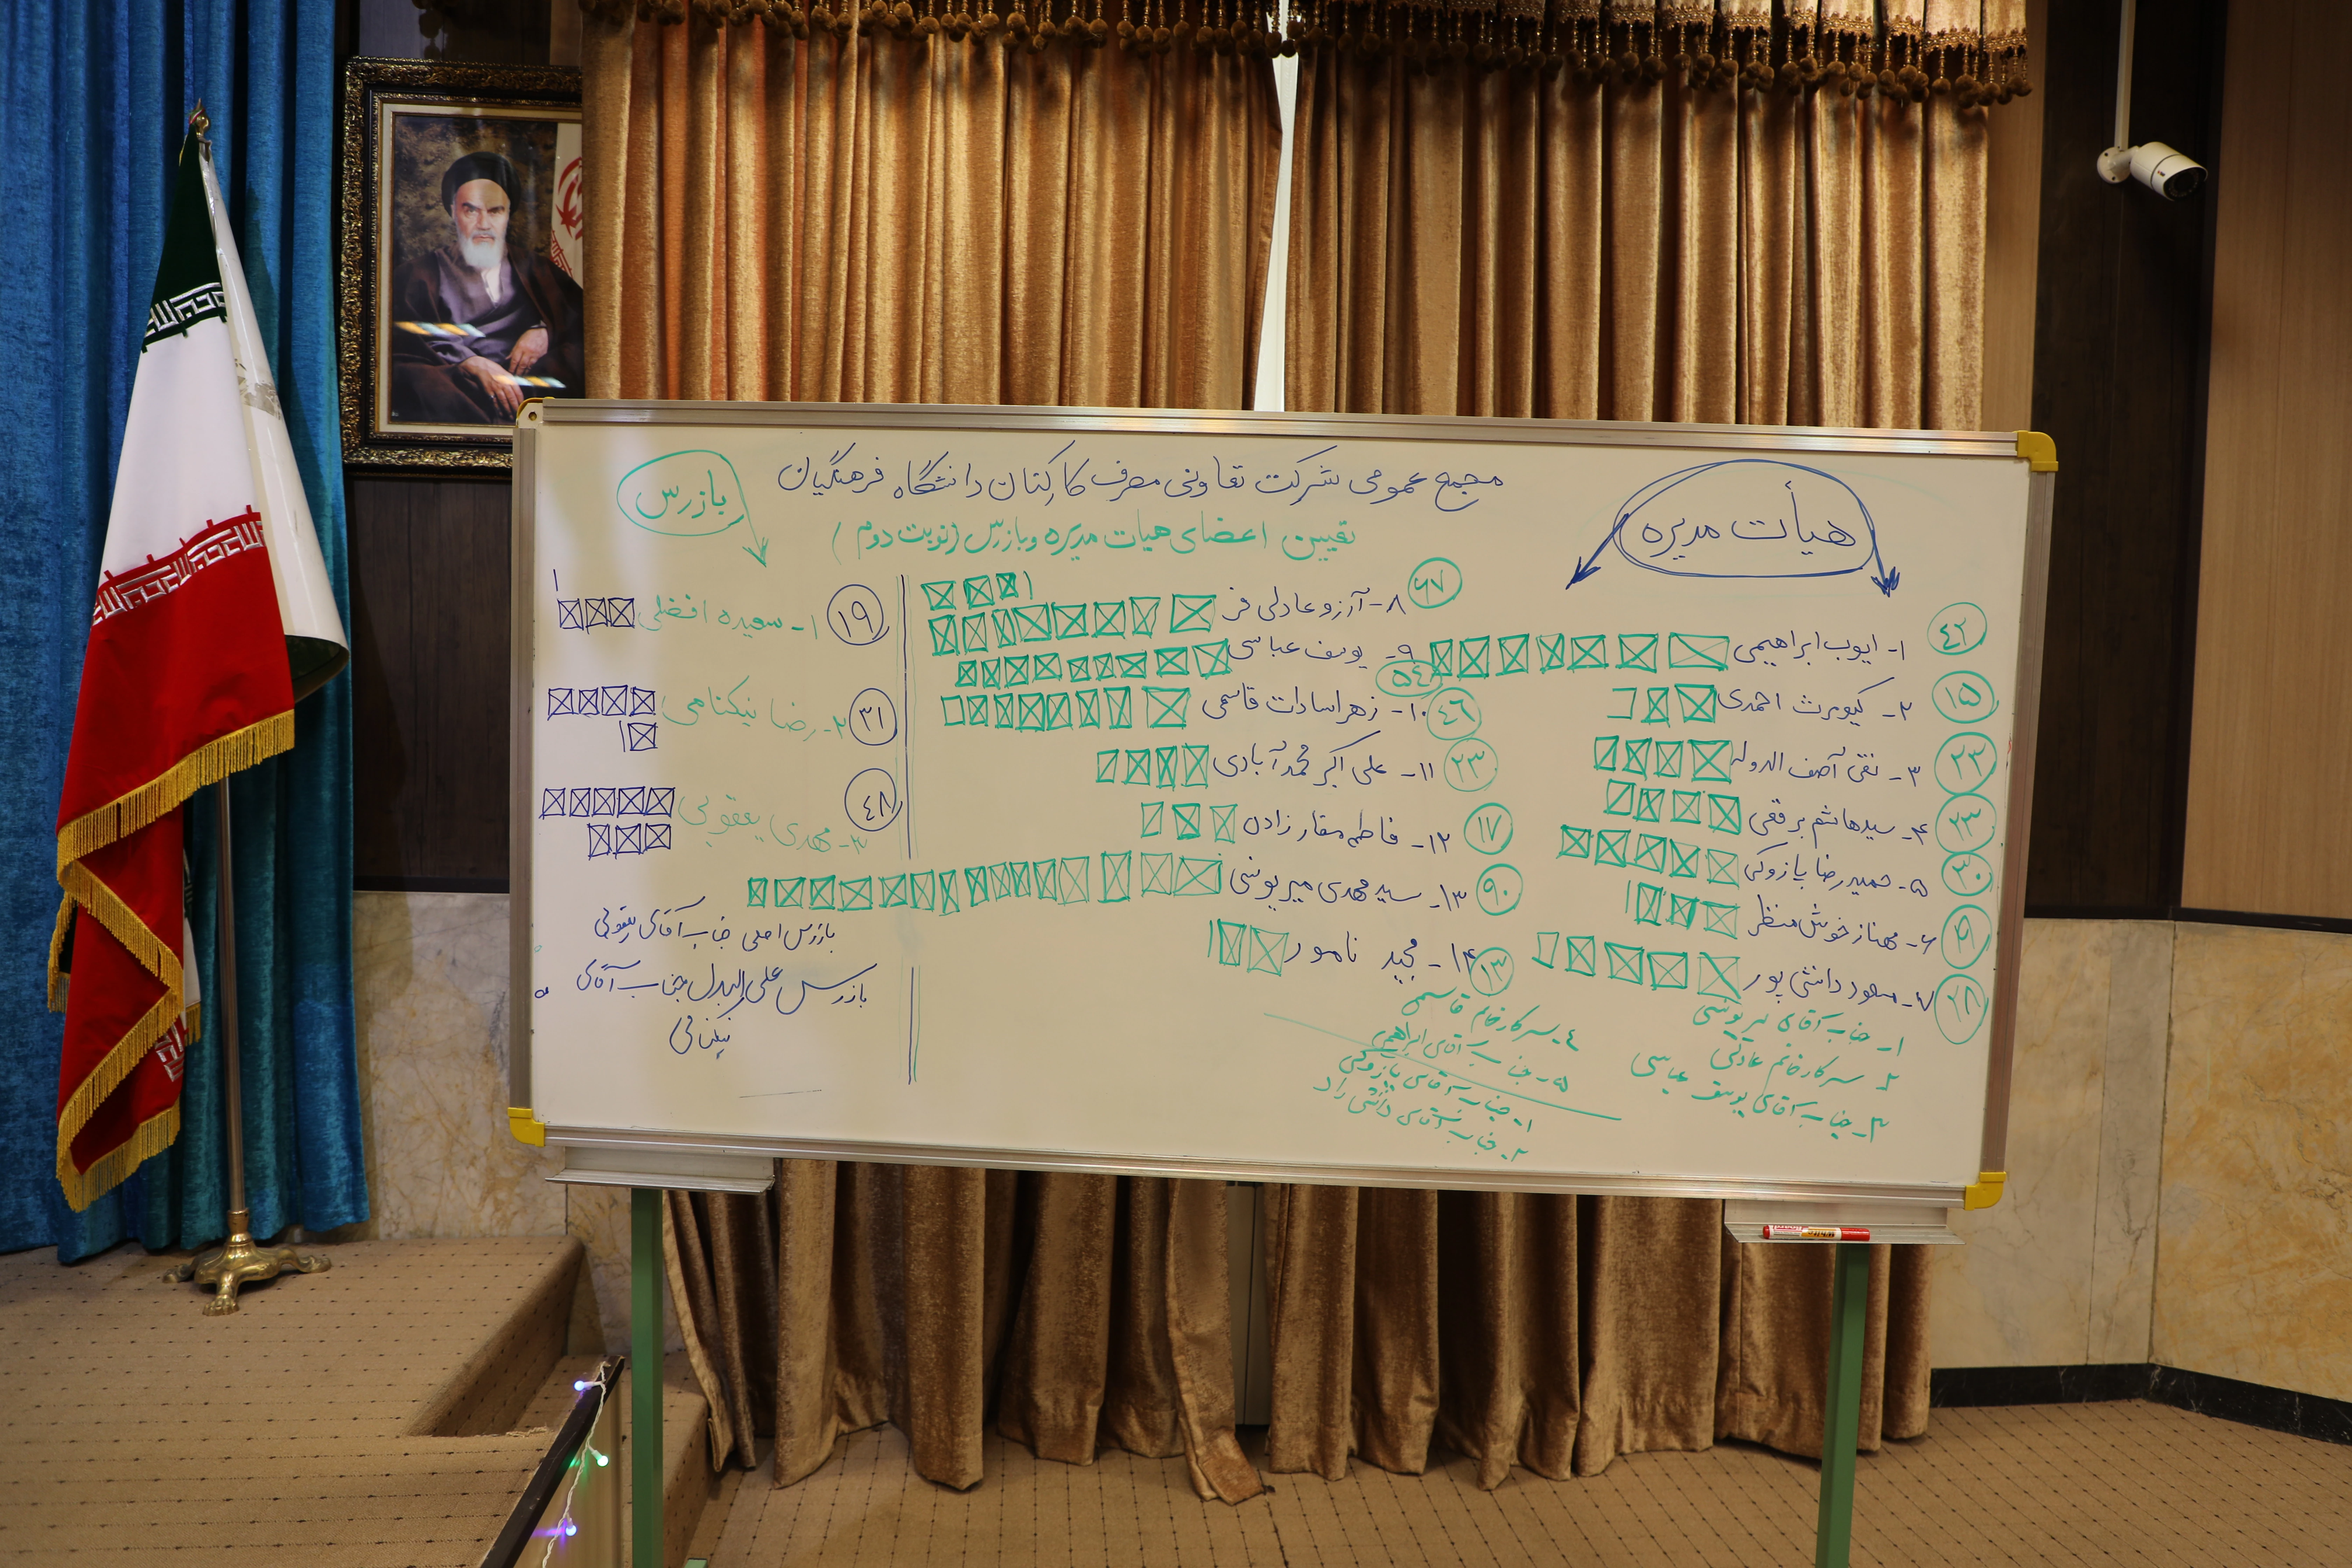 مجمع عمومی شرکت تعاونی مصرف کارکنان دانشگاه فرهنگیان
تعیین اعضای هیات مدیره و بازرس (نوبت دوم)
هیأت مدیره
۱- ایوب ابراهیمی ۴۲
۲- کیومرث احمدی ۱۵
۳- تقی آصف الدوله ۲۳
۴- سید هاشم برقعی ۲۳
۵- حمیدرضا پازوکی ۳۰
۶- مهناز خوش منظر
۷- مسعود دانش پور ۲۸
۸- آرزو عادلی فر ۶۷
۹- یوسف عباسی ۵۴
۱۰- زهرا سادات قاسمی ۴۶
۱۱- علی اکبر محمدآبادی ۲۳
۱۲- فاطمه صفارزاده ۱۷
۱۳- سید مهدی میریونسی ۹۰
۱۴- مجید نامور ۱۳
۱- جناب آقای میریونسی
۲- سرکار خانم عادلی
۳- جناب آقای یوسف عباسی
۴- سرکار خانم قاسمی
۵- جناب آقای ابراهیمی
۱- جناب آقای پازوکی
۲- جناب آقای
بازرس
۱- سعیده افضلی ۱۹
۲- رضا نیکنامی ۳۱
۳- مهدی یعقوبی ۴۸
بازرس اصلی جناب آقای یعقوبی
بازرس علی البدل جناب آقای
نیکنامی